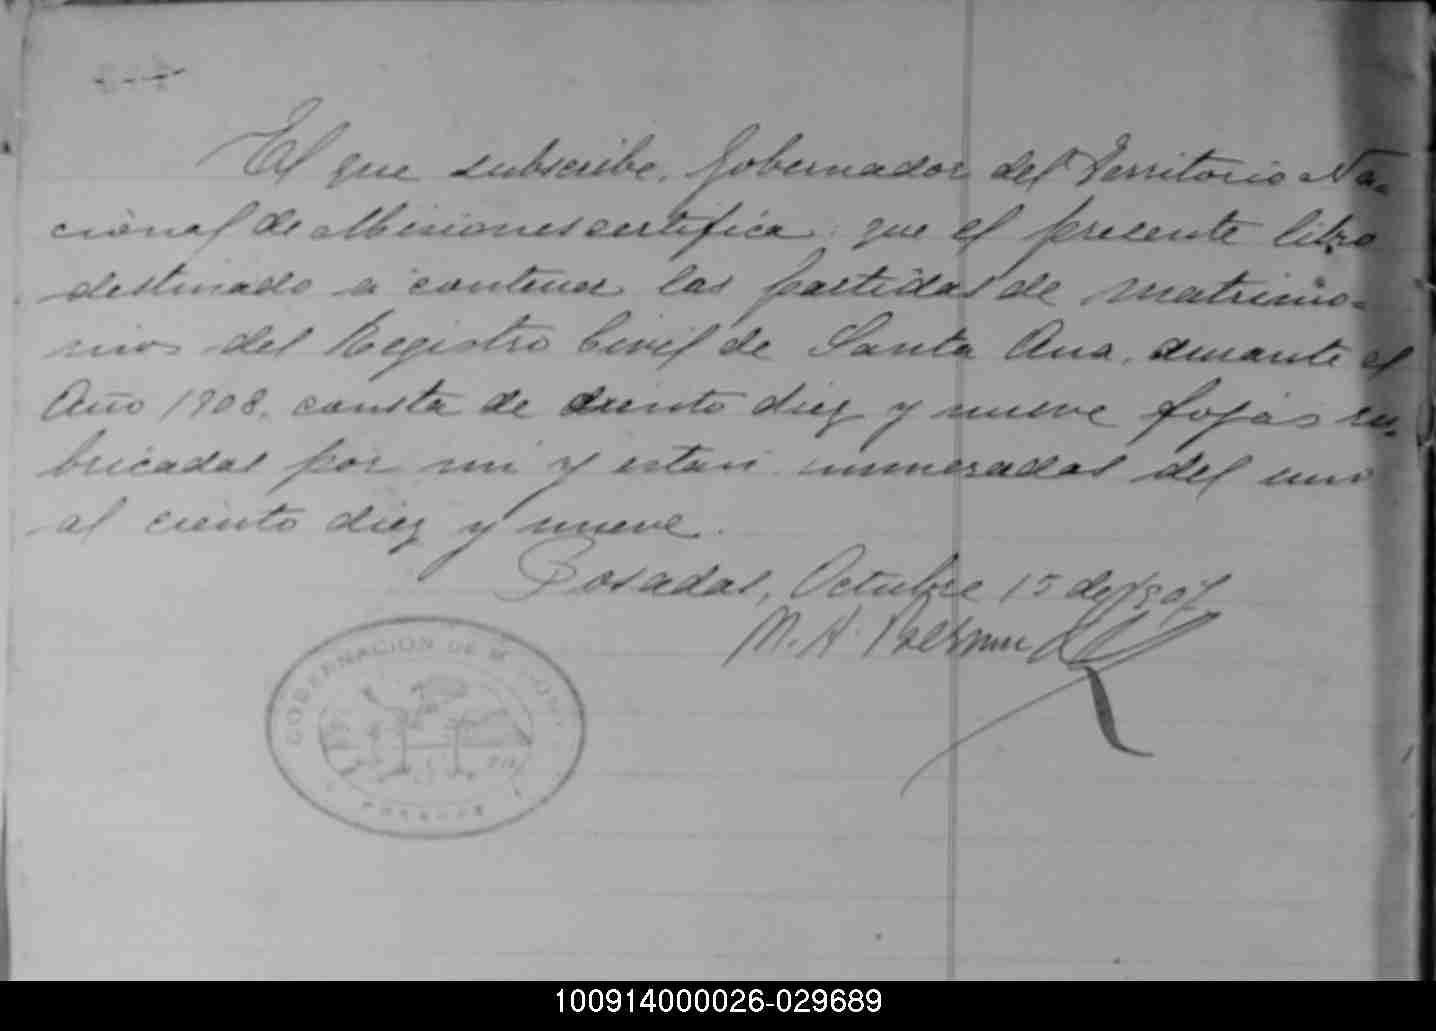 El que subscribe, Gobernador del Territorio Na-
cional de Misiones certifica: que el presente libro
destinado a contener las partidas de matrimo-
nios del Registro Civil de Santa Ana, durante el
Año 1908, consta de ciento diez y nueve fojas ru-
bricadas por mi y estan numeradas del uno
al ciento diez y nueve.
Posadas, Octubre 15 de 1907
M. A.
GOBERNACION DE
POSADAS
100914000026-029689